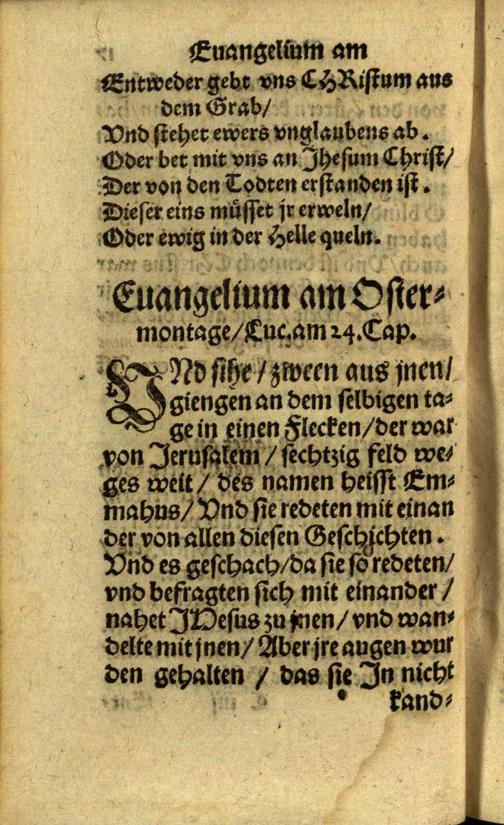 Euangelium am
Entweder gebt vns CHRistum aus
dem Grab/
Vnd stehet ewers vnglaubens ab.
Oder bet mit vns an Jhesum Christ/
Der von den Todten erstanden ist.
Dieser eins müsset jr erweln/
Oder ewig in der Helle queln.
Euangelium am Oster-
montage/Luc.am 24.Cap.
VNd sihe/zween aus jnen/
giengen an dem selbigen ta-
ge in einen Flecken/der war
von Jerusalem/sechtzig feld we-
ges weit/des namen heisst Em-
mahus/Vnd sie redeten mit einan
der von allen diesen Geschichten.
Vnd es geschach/da sie so redeten/
vnd befragten sich mit einander/
nahet JHesus zu jnen/vnd wan-
delte mit jnen/Aber jre augen wur
den gehalten/das sie Jn nicht
kand-